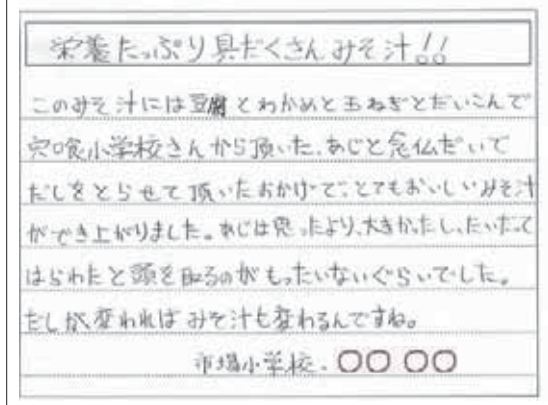 栄養たっぷり具だくさんみそ汁!!
このみそ汁には豆腐とわかめと玉ねぎとだいこんで
宍喰小学校さんから頂いた、あじと念仏だいで
だしをとらせて頂いたおかげで、とてもおいしいみそ汁
ができ上がりました。あじは思ったより、大きかったし、
はらわたと頭を取るのがもったいないぐらいでした。
だしが変わればみそ汁も変わるんですね。
市場小学校. 〇〇 〇〇